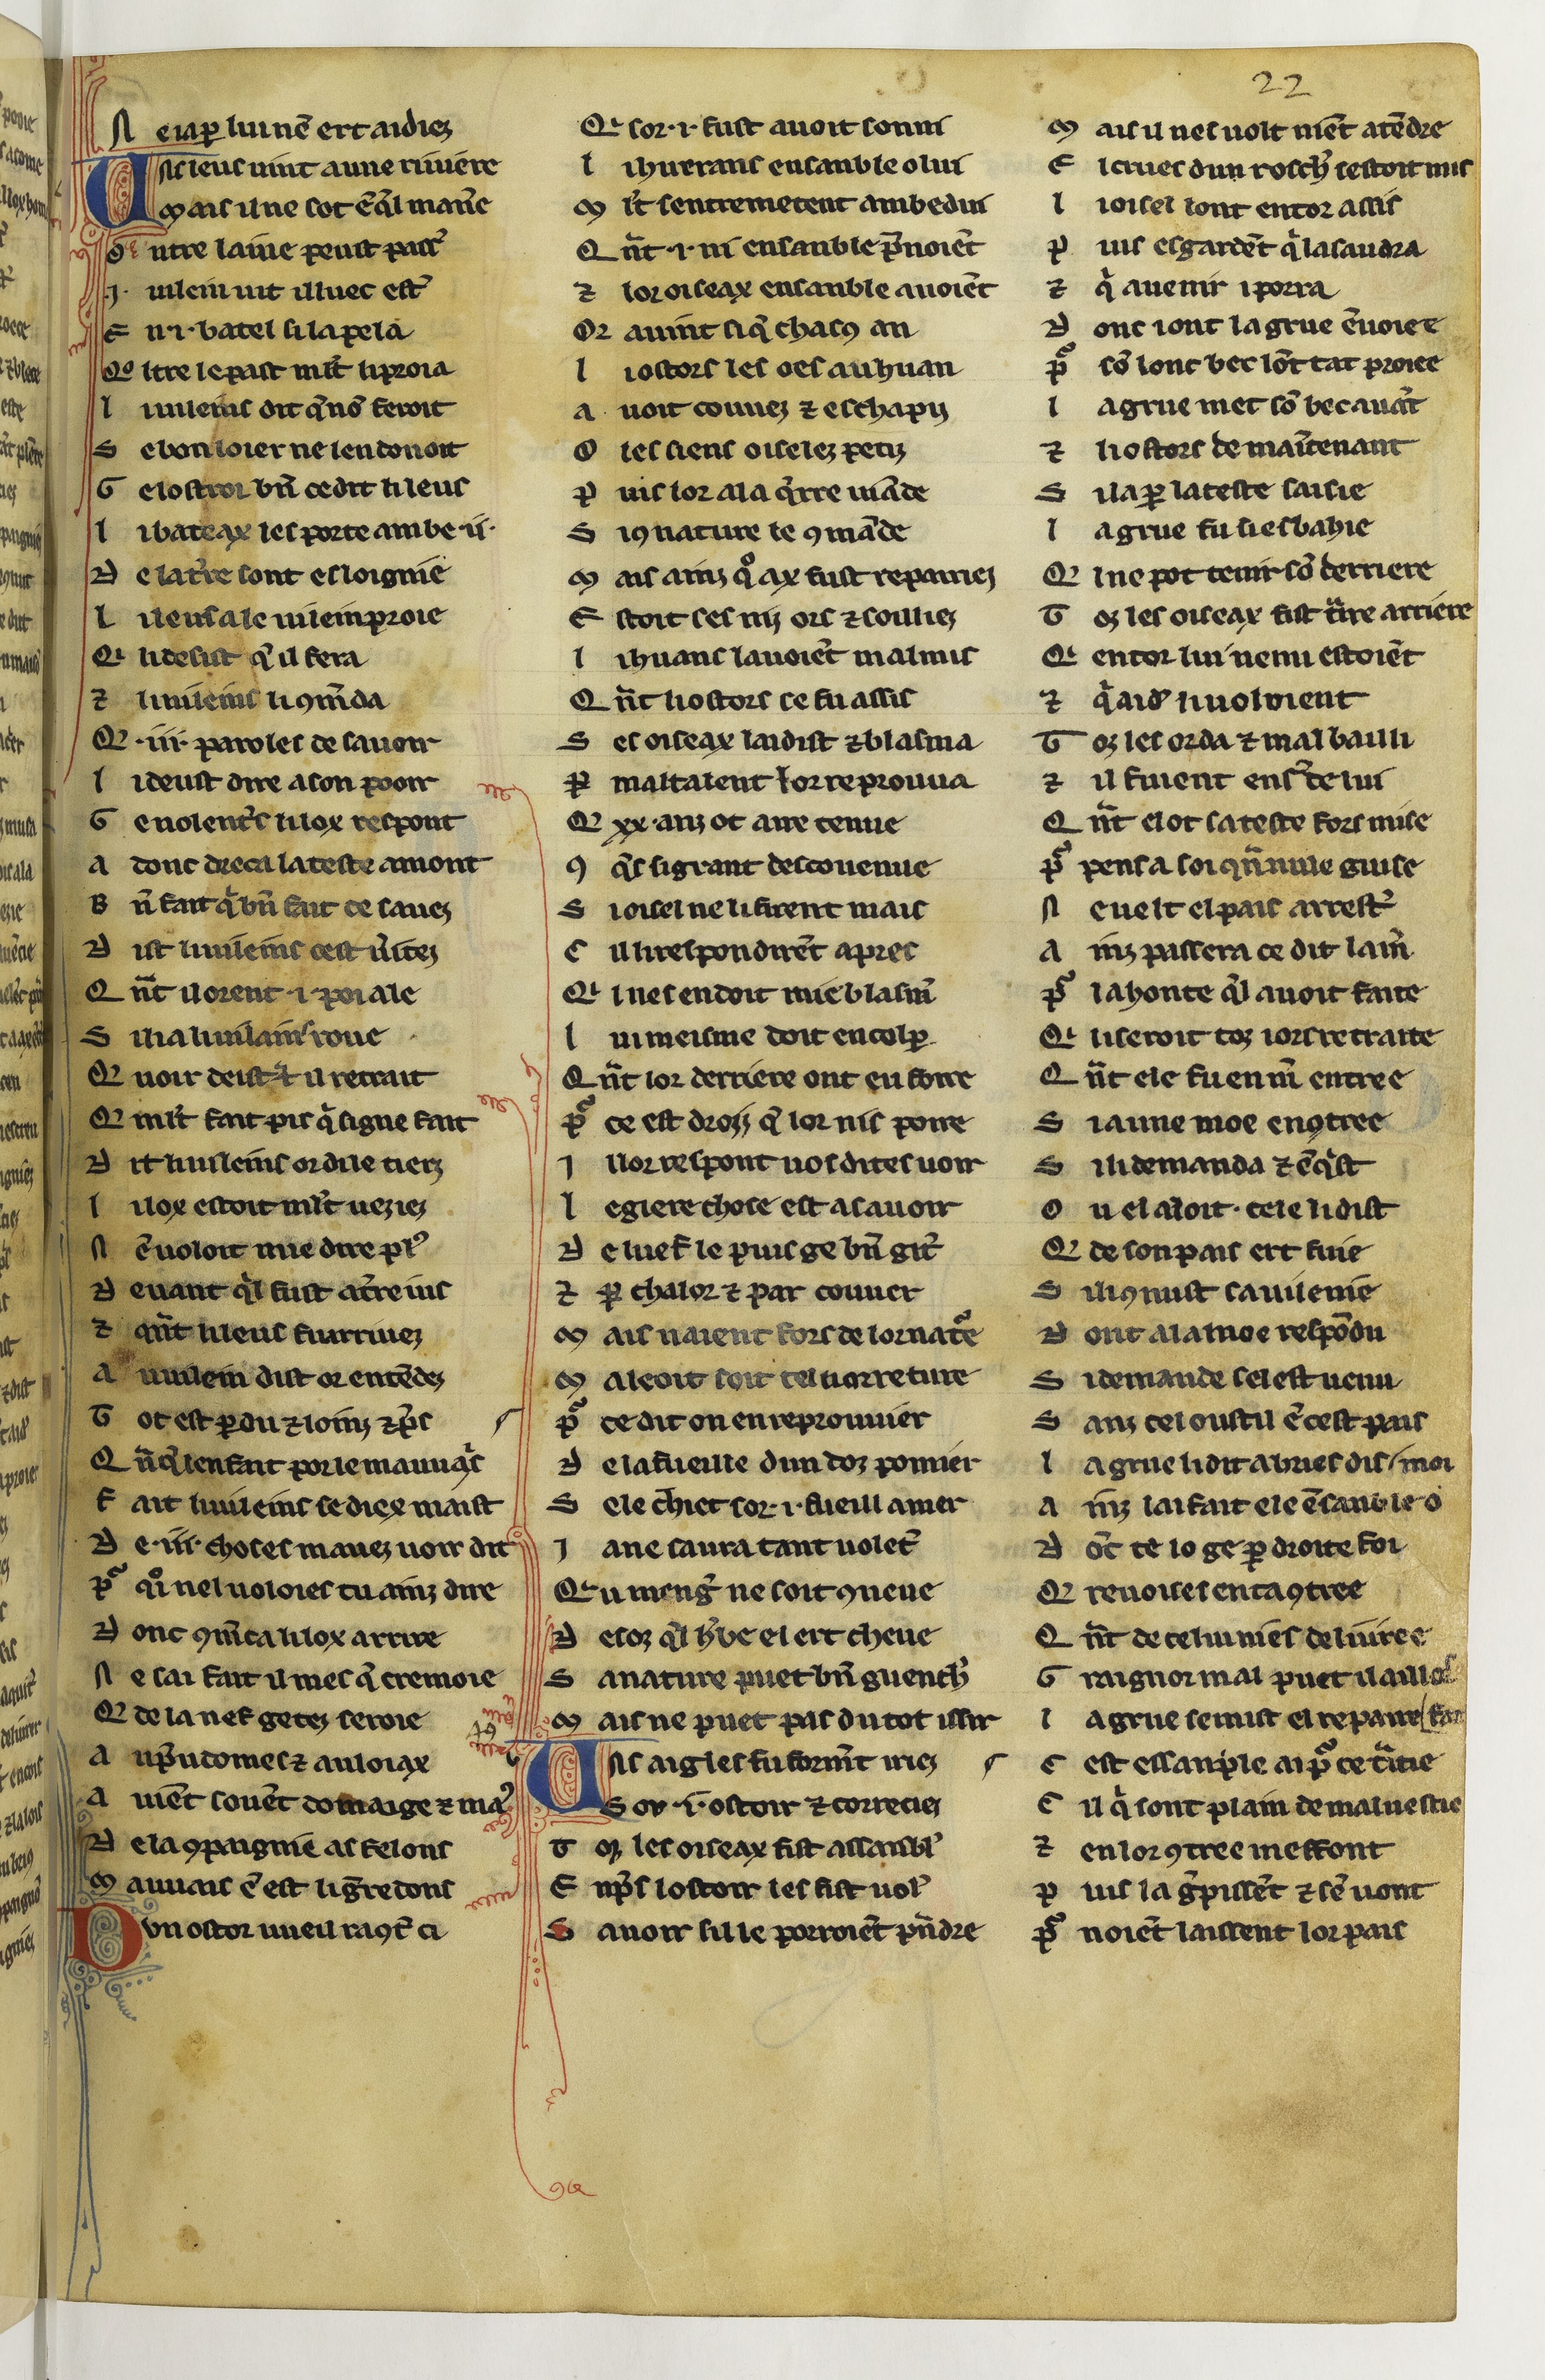 22
N e ia ꝑ lui nẽ ert aidiez
Uns leus uint a une riuiere
Mais il ne sot cõ q̃l maniẽ
O ntre laiue peust pass᷑
.I. uilein uit illuec est᷑
E n .i. batel si lapela
Qo ltre le past ml̃t li proia
l i uileins dit q̃ nõ feroit
S e bon loier ne len donoit
G e lostroi bñ ce dit li leus
l i bateax les porte ambe .ii.
D e la t̃re sont esloignie
L i leus a le uilein proie
Qi li desist q̃ il fera
⁊ li uileins li ꝯmãda
Q .iii. paroles de sauoir
l i deust dire a son pooir
G e uolent̃s li lox respont
a donc dreca la teste amont
B ñ fait q̃ bñ fait ce sauez
D ist li uileins cest ũitez
Q ñt il orent .i. poi ale
S i li a li uilains roue
Q uoir deist ⁊ il retrait
Q ml̃t fait pis q̃ si gne fait
D it li uileins or di le tierz
l i lox estoit ml̃t ueziez
N ẽ uoloit mie dire pl᷒
D euant q̃l fust a t̃re ius
⁊ q̃nt li leus fu arriuez
A u uilein dist or entẽdez
T ot est ꝑdu ⁊ loinz ⁊ p̃s
Q ñq̃ len fait por le mauuais
F ait li uileins se diex maist
D e .iii. choses mauez uoir dit
P᷑ qoi nel uoloies tu ainz dire
D onc ꝯmẽca li lox a rire
N e sai fait il mes q̃ cremoie
Q de la nef getez seroie
A u p̃udomes ⁊ au loiax
A uiẽt souẽt domaige ⁊ max
D e la ꝯpaignie as felons
M auuais ẽ est li gẽredons
Dun ostor uueil raꝯt᷑ ci
Qi sor .i. fust auoit son ni
l i huerans ensanble o lui
M l̃t sentremetent ambedui
Q ñt .i. ni ensanble p̃noiẽt
⁊ lor oiseax ensanble auoiẽt
Or auint si q̃ chascꝯ an
l i ostors les oes au huan
a uoit couuez ⁊ eschapiz
O les siens oiselez petiz
P uis lor ala q̃rre uiãde
S i ꝯ nature le ꝯmãde
M ais ainz qo ax fust repairiez
E stoit ses niz ors ⁊ soilliez
l i huans lauoiẽt malmis
Q ñt li ostors se fu assis
S es oiseax laidist ⁊ blasma
P ᷑ maltalent lor reprouua
Q .xx. anz ot aire tenue
ꝯ q̃s si grant descouenue
S i oisel ne li firent mais
C il li respondirẽt apres
Qi l nes en doit mie blasm᷑
l ui meisme doit encolp᷑
Q ñt lor derriere ont eu foire
P᷑ ce est droiz q̃ lor nis poire
I l lor respont uos dites uoir
l egiere chose est a sauoir
D e luef le puis ge bñ git᷑
⁊ ꝑ chalor ⁊ par couuer
M ais naient fors de lor nat᷑e
M aleoit soit tel norreture
P᷑ ce dit on en reprouuier
D e la fueille dun doz pomier
S ele chiet sor .i. fueill amer
I a ne saura tant uolet᷑
Qu u meng᷑ ne soit ꝯneue
D esoz q̃l h̃be el ert cheue
S a nature puet bñ guench᷑
M ais ne puet pas du tot issir
Uns aigles fu formt̃ iriez
Sor .i. ostoir ⁊ correciez
T oz les oiseax fist assanbl᷑
E np̃s lostoir les fist uol᷑
S auoir sil le porroiẽt p̃ndre
M ais il nes uolt niẽt atẽdre
E l crues dun rosch᷑ sestoit mis
l i oisel sont entor assis
P uis esgardẽt q̃ la saudra
⁊ q̃ auenir i porra
D onc i ont la grue ẽuoiee
P᷑ sõ lonc bec lõt tãt proiee
l a grue met sõ bec auãt
⁊ li ostors de maĩtenant
S i la ꝑ la teste saisie
l a grue fu si esbahie
Q l ne pot tenir sõ derriere
T oz les oiseax fist t᷑ire arriere
Qi entor lui uenu estoiẽt
⁊ q̃ aid᷑ li uoloient
T oz les orda ⁊ mal bailli
⁊ il fuient ensus de lui
Q ñt el ot sa teste fors mise
P᷑ pensa soi qñ nule guise
N e uelt el pais arrest᷑
A inz passera ce dit la m᷑
P᷑ la honte q̃l auoit faite
Qi li seroit toz iors retraite
Q ñt ele fu en m᷑ entree
S i a une moe enꝯtree
S i li demanda ⁊ ẽq̃st
O u el aloit . cele li dist
Q de son pais ert fuie
S i li ꝯnust sa uilenie
D ont a la moe respõdu
S i demande sel est uenu
S anz cel oustil ẽ cest pais
l a grue li dit abries dis moi
A inz lai fait ele ẽsanble o
D õc te lo ge ꝑ droite foi
Q reuoises en ta ꝯtree
Q ñt de celui nies deliuree
G raignor mal puet il aillors
l a grue se mist el repaire fai
C est essanple ai p᷑ ce t᷑itie
C il q̃ sont plain de maluestie
⁊ en lor ꝯtree meffont
P uis la g᷑pissẽt ⁊ sẽ uont
P᷑ noiẽt laissent lor pais